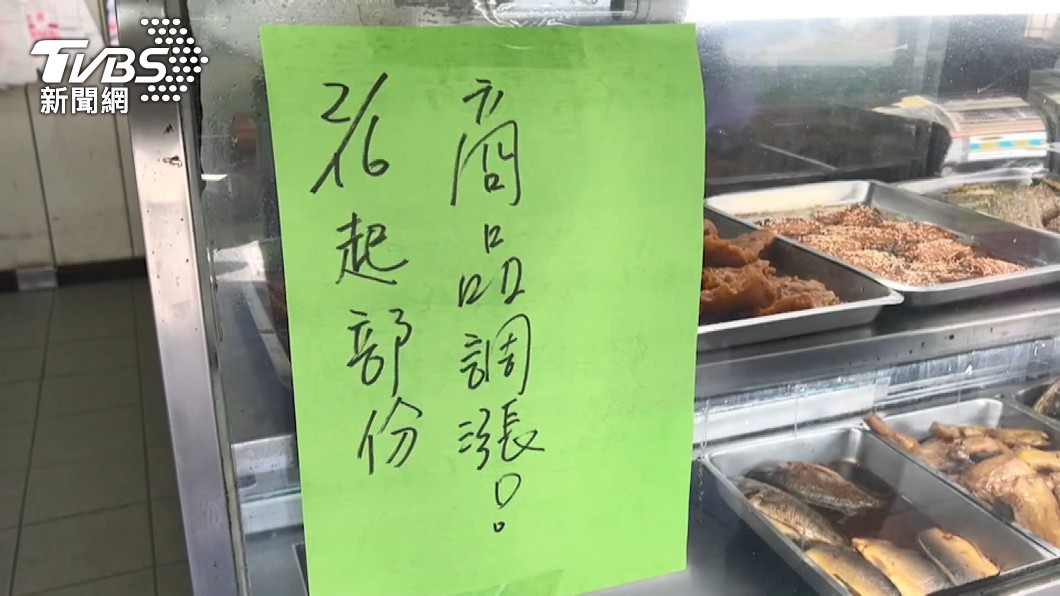 TVBS
新聞網
2/16起部份
商品調漲!